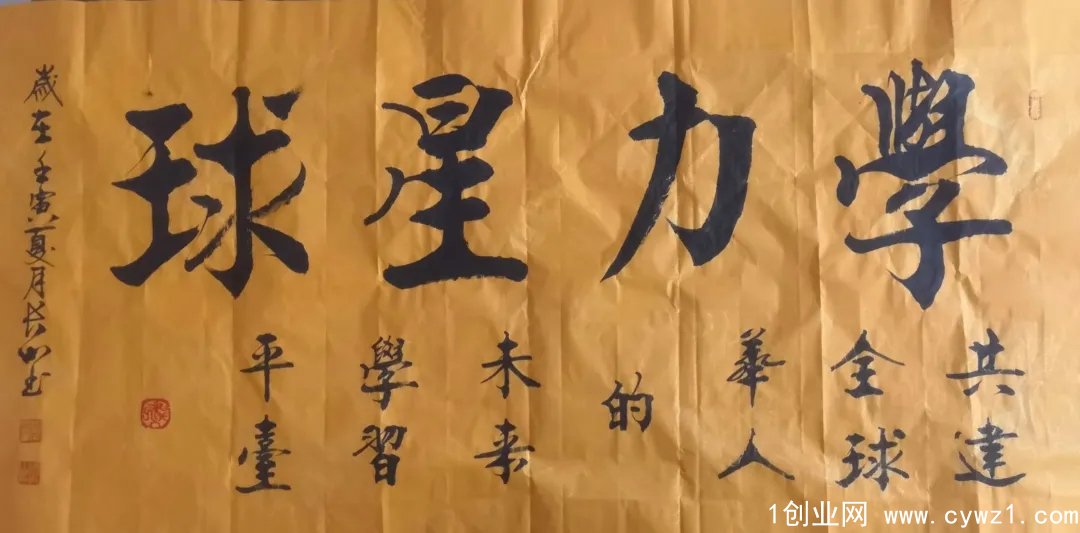 學力星球
共建
全球
華人
的
未来
學習
平臺
歲在壬寅夏月长山书
1创业网 www.cywz1.com